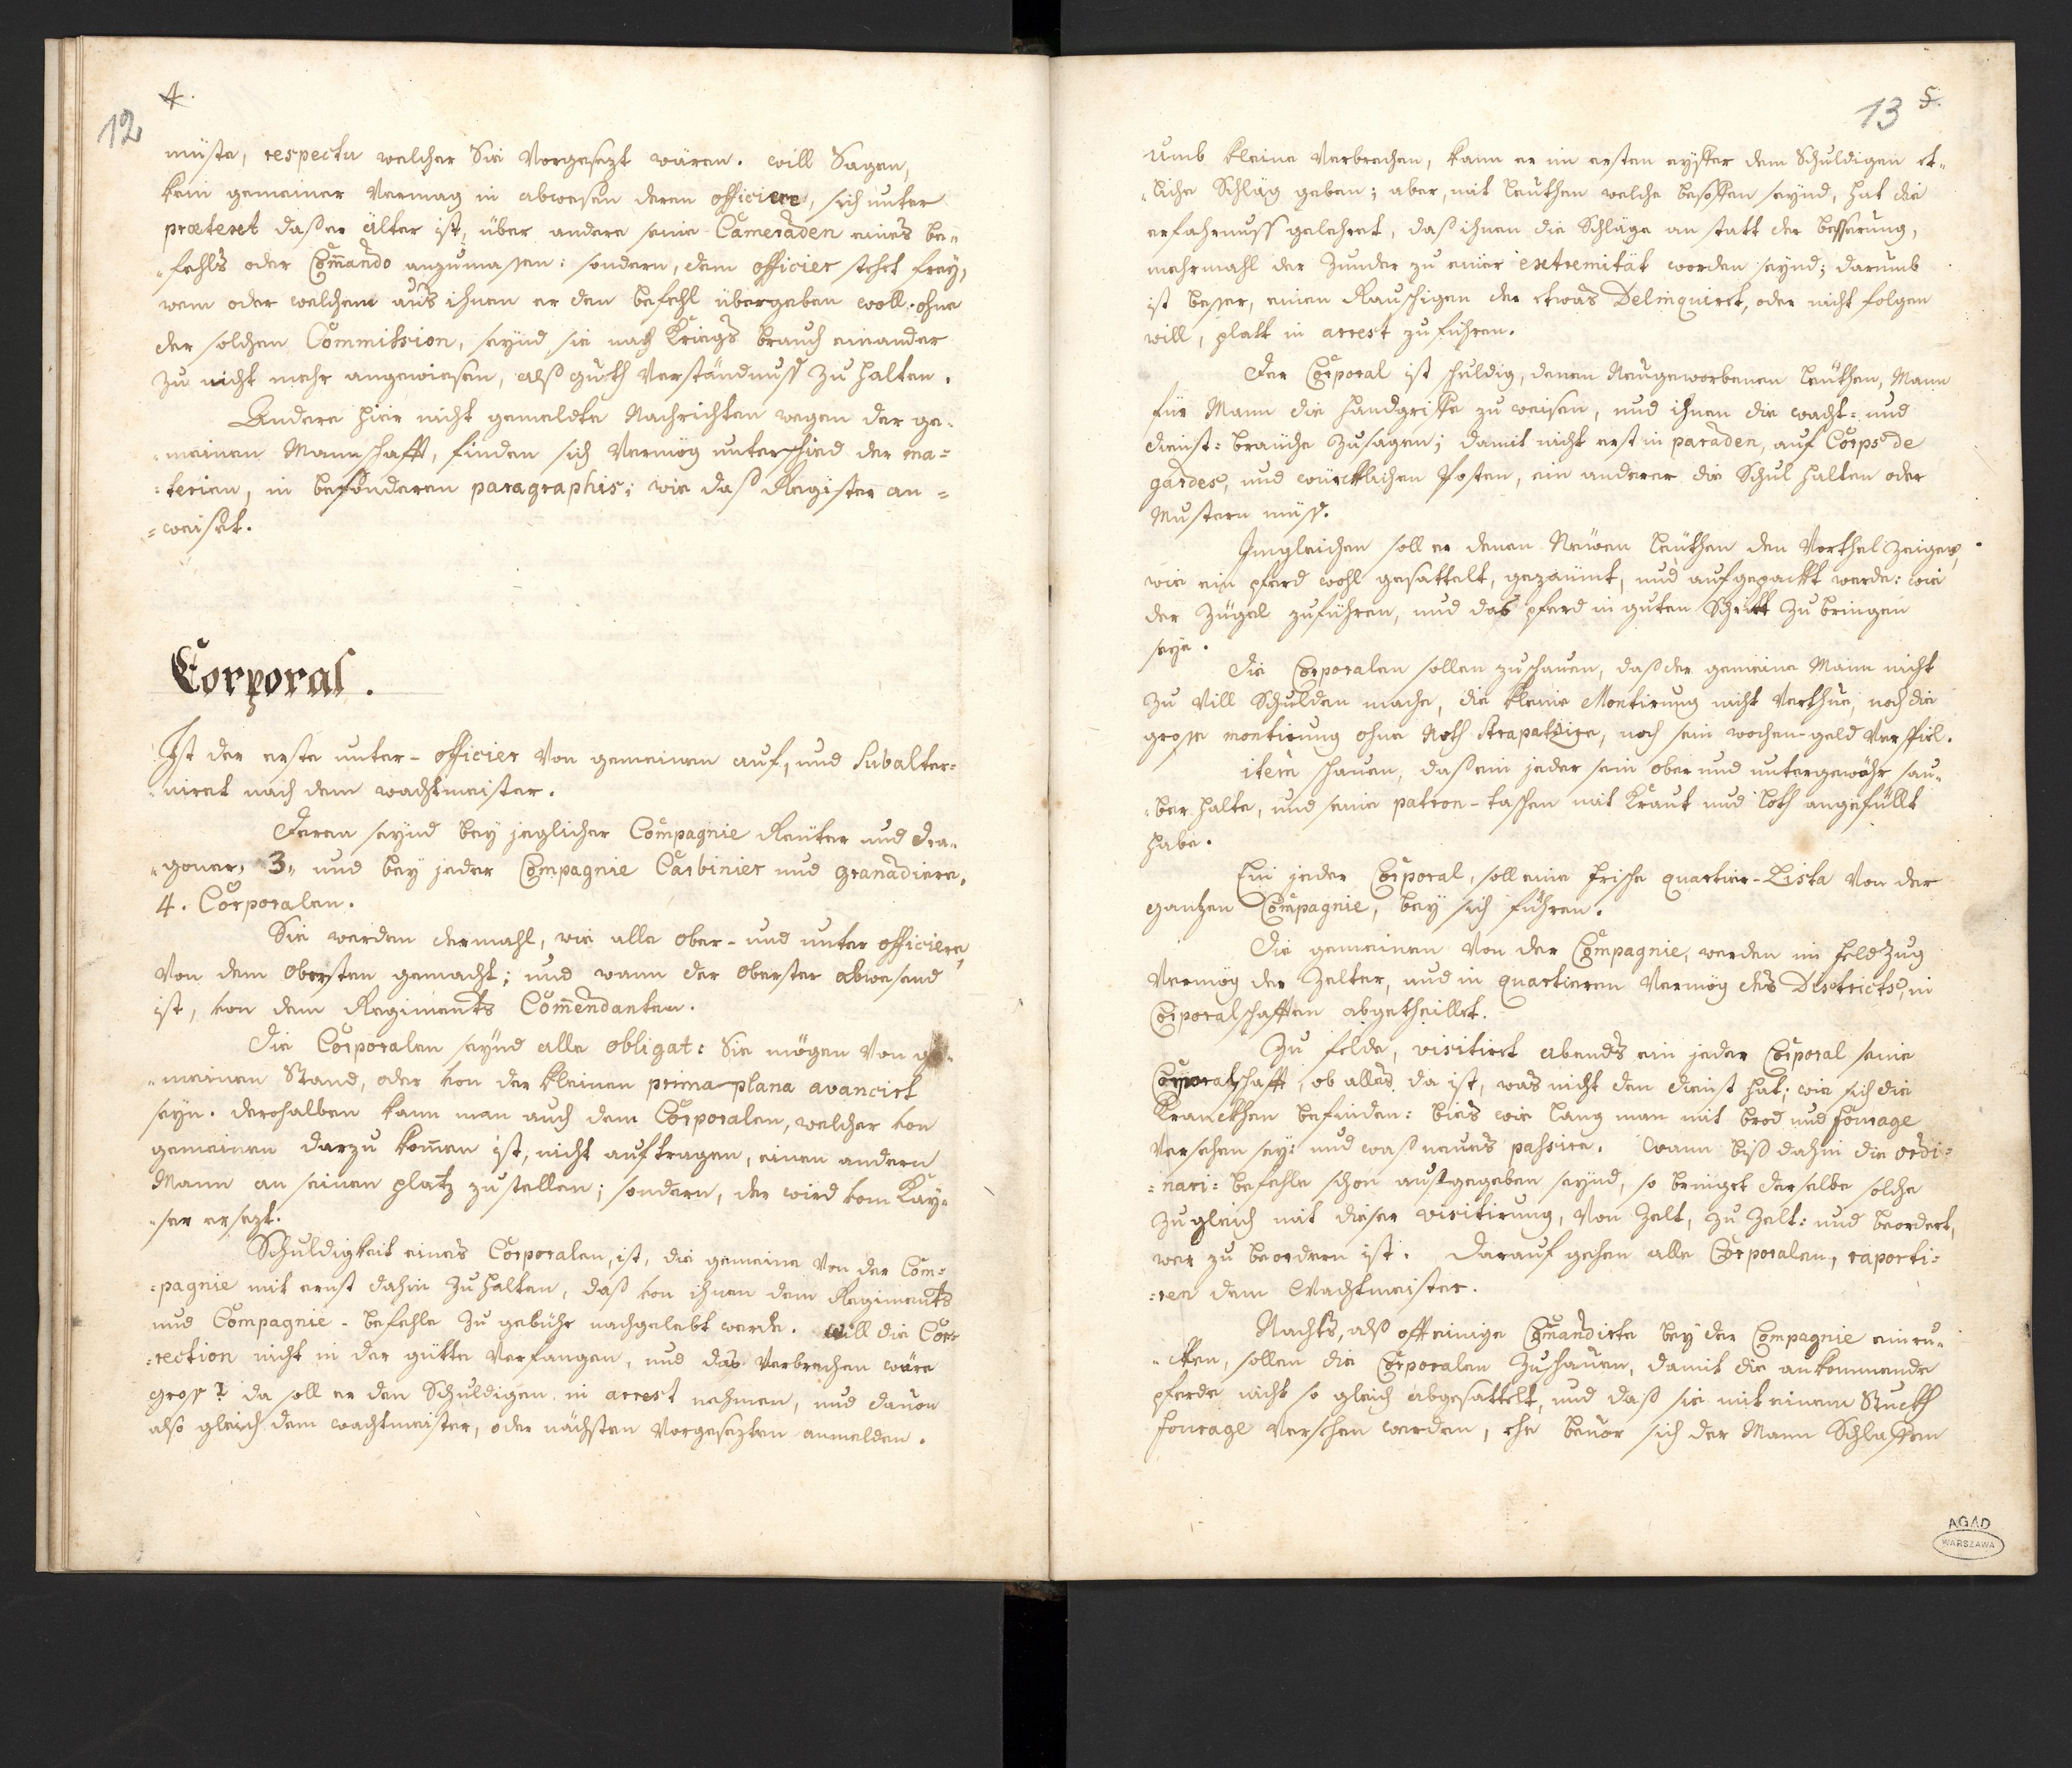 4.
12
müste, respectu welcher Sie Vorgesezt wären. will Sagen,
kein gemeiner Vermag in abwesen deren officiere, sich unter
prætext daß er älter ist, über andere seine Cameraden eines be-
-fehls oder Com̃ando anzumassen: sondern, dem officier stehet frey,
wem oder welchem aus ihnen er den befehl übergeben woll. ohne
der solchen Commission, seynd sie nach Kriegs brauch einander
zu nicht mehr angewiesen, alß guth Verständnuss zu halten.
Andere hier nicht gemeldte Nachrichten wegen der ge-
-meinen Mannschafft, finden sich Vermög unterschied der ma=
=terien, in besonderen paragraphis; wie daß Register an =
=weiset.
Corporal.
Ist der erste unter-officier Von gemeinen auf, und subalter=
-niret nach dem wachtmeister.
Deren seynd bey jeglicher Compagnie Reuter und Dra-
-goner, 3, und bey jeder Compagnie Carbinier und granadiere,
4. Corporalen.
Sie werden dermahl, wie alle ober- und unter officiere,
Von dem Obersten gemacht; und wann der Oberster abwesend
ist, von dem Regiments Com̃endanten.
Die Corporalen seynd alle obligat: Sie mögen Von ge-
-meinen Stand, oder von der kleinen prima plana avancirt
seyn. derohalben kann man auch dem Corporalen, welcher von
gemeinen darzu kom̃en ist, nicht auftragen, einen andern
Mann an seinen platz zu stellen; sondern, der wird vom Kay-
-ser ersezt.
Schuldigkeit eines Corporalen, ist, die gemeine Von der Com=
=pagnie mit ernst dahin zu halten, daß von ihnen dem Regiments
und Compagnie-befehle zu gebühr nachgelebt werde. will die Cor=
=rection nicht in der gütte Verfangen, und das Verbrechen wäre
gross? da soll er den Schuldigen in arrest nehmen, und davon
alsogleich dem wachtmeister, oder nächsten Vorgesezten anmelden.
13
5.
Umb kleine Verbrechen, kann er im ersten eyffer dem Schuldigen et-
-liche Schläg geben; aber, mit leuthen welche besoffen seynd, hat die
erfahrnuss gelehret, daß ihnen die Schläge an statt der besserung,
mehrmahl der Zunder zu einer extremität worden seynd; darumb
ist besser, einen Rauschigen der etwas Delinquiret, oder nicht folgen
will, platt in arrest zu führen.
Der Corporal ist schuldig, denen Neugeworbenen leuthen, Mann
für Mann die handgriffe zu weisen, und ihnen die wacht= und
dienst= bräuche zusagen; damit nicht erst in paraden, auf Corps de
gardes, und würcklichen Posten, ein anderer die Schul halten oder
Mustern müss.
Imgleichen soll er denen Neüen leuthen den Vorthel zeigen,
wie ein pferd wohl gesattelt, gezäumt, und aufgepackt werde: wie
der Zügel zuführen, und das pferd in guten Schritt zu bringen
seye.
Die Corporalen sollen zuschauen, daß der gemeine Mann nicht
zu Vill Schulden mache, die kleine Montirung nicht Verthue, noch die
grosse montirung ohne Noth strapatzire, noch sein wochen-geld Verspiel.
item schauen, daß ein jeder sein ober und untergewöhr sau-
-ber halte, und seine patron-taschen mit Kraut und loth angefüllt
habe.
Ein jeder Corporal, soll eine frische quartier-Lista Von der
gantzen Compagnie, bey sich führen.
Die gemeinen Von der Compagnie, werden im feldzug
Vermög der Zelter, und in quartieren Vermög des Districts, in
Corporalschafften abgetheillet.
Zu felde, visitiret abends ein jeder Corporal seine
Corporalschafft, ob alles da ist, was nicht den dienst hat; wie sich die
Kranckhen befinden: bies wie lang man mit brod und fourage
Versehen sey: und waß neues passire. Wann biß dahin die ordi=
=nari= befehle schon aussgegeben seynd, so bringet derselbe solche
zugleich mit dieser visitirung, Von Zelt, zu Zelt: und beordert,
wer zu beordern ist. Darauf gehen alle Corporalen, raporti=
=ren dem Wachtmeister.
Nachts, alß offt einige Com̃andirte bey der Compagnie einru-
-cken, sollen die Corporalen zuschauen, damit die ankommende
pferde nicht so gleich abgesattelt, und daß sie mit einem Stuckh
fourage Versehen werden, ehe bevor sich der Mann Schlaffen
AGAD
WARSZAWA